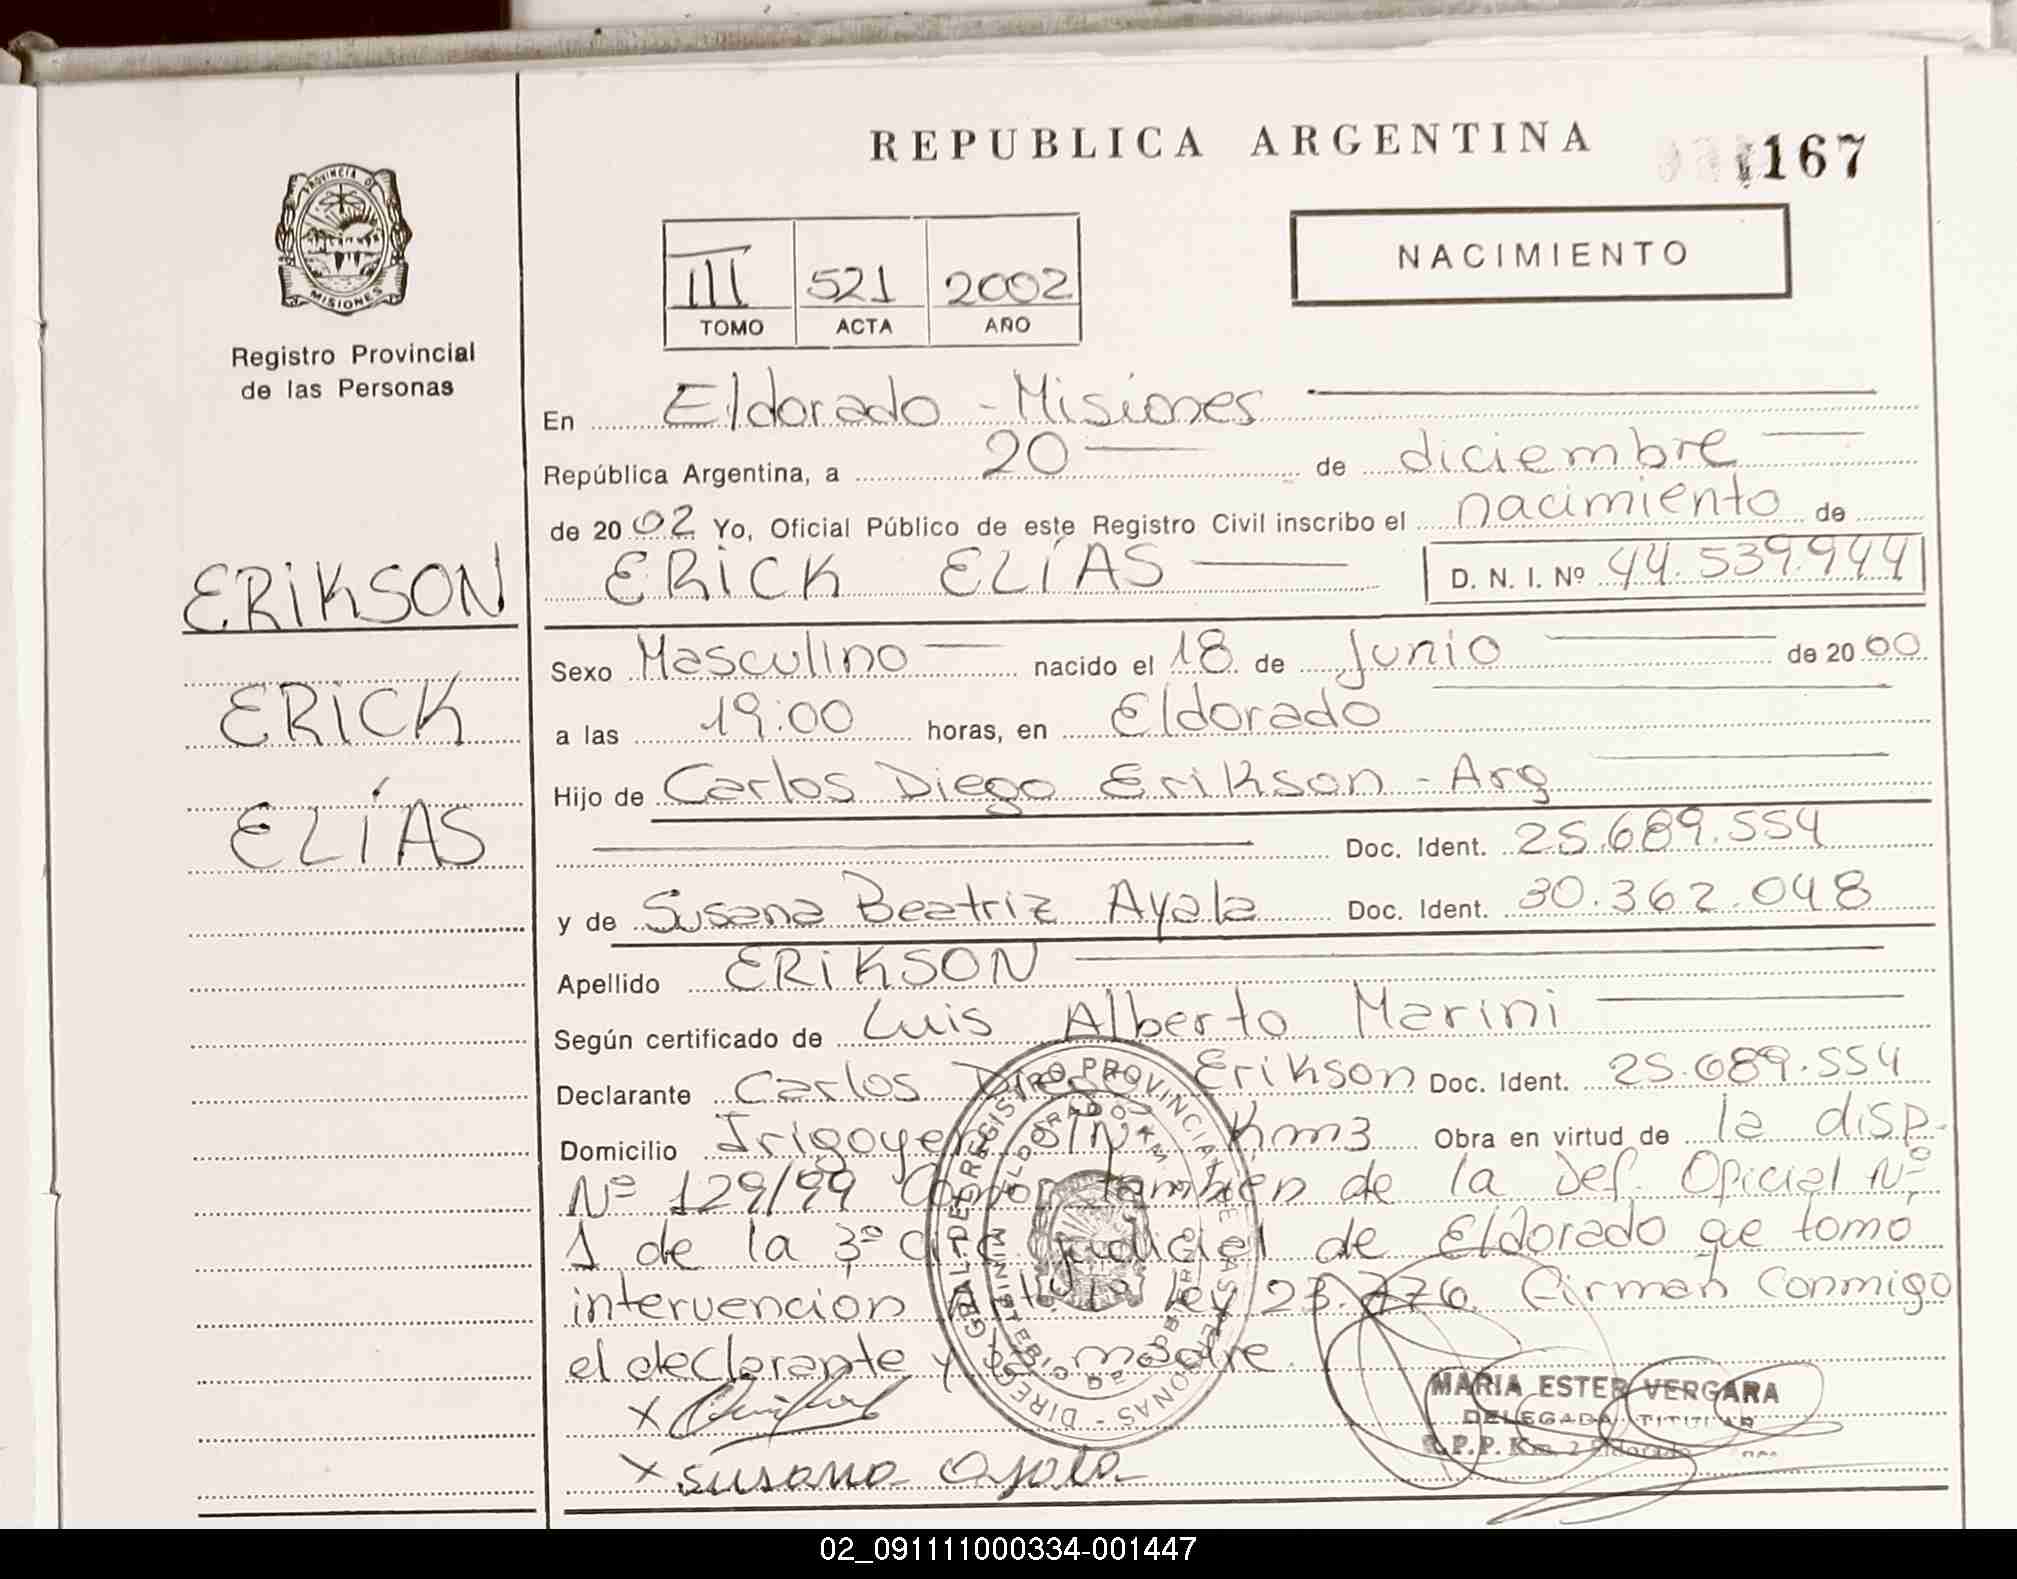 REPUBLICA ARGENTINA
167
PROVINCIA DE
MISIONES
Registro Provincial
de las Personas
NACIMIENTO
III 521 2002
TOMO ACTA AÑO
En Eldorado - Misiones
República Argentina, a 20 de diciembre
de 2002 Yo, Oficial Público de este Registro Civil inscribo el nacimiento de
ERICK ELÍAS D. N. I. Nº 44.539.944
ERIKSON
ERICK
ELÍAS
Sexo Masculino nacido el 18 de Junio de 2000
a las 19:00 horas, en Eldorado
Hijo de Carlos Diego Erikson - Arg
Doc. Ident. 25.689.554
y de Susana Beatriz Ayala Doc. Ident. 30.362.048
Apellido ERIKSON
Según certificado de Luis Alberto Marini
Declarante Carlos Diego Erikson Doc. Ident. 25.689.554
Domicilio Irigoyen S/N Km3 Obra en virtud de la disp.
Nº 129/99 Como tambien de la Def. Oficial Nº
1 de la 3º circ judicial de Eldorado qe tomó
intervencion ley 23.776. Firman Conmigo
el declarante y la madre.
susana ayala
MARIA ESTER VERGARA
DELEGADA TITULAR
R.P.P. Km. 2 Eldorado
02_091111000334-001447